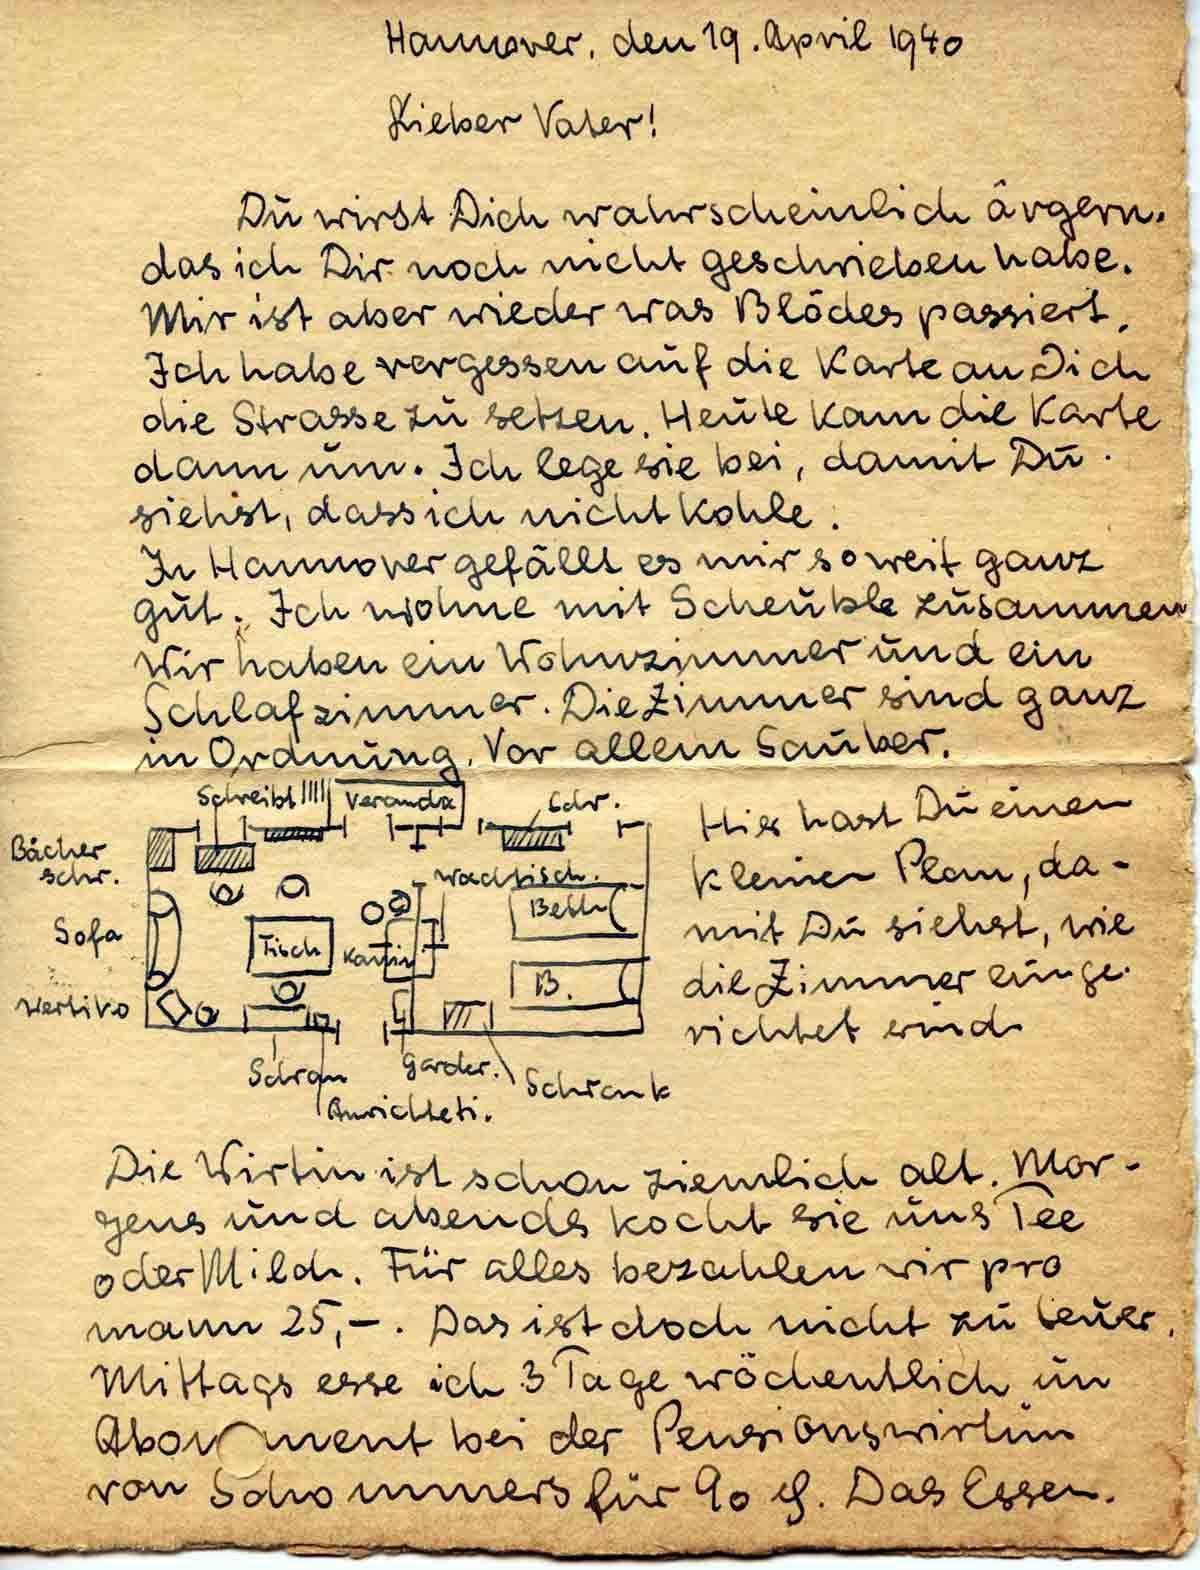 Hannover, den 19. April 1940
Lieber Vater!
Du wirst Dich wahrscheinlich ärgern.
das ich Dir noch nicht geschrieben habe.
Mir ist aber wieder was Blödes passiert.
Ich habe vergessen auf die Karte an Dich
die Strasse zu setzen. Heute kam die Karte
dann um. Ich lege sie bei, damit Du
siehst, dass ich nicht kohle.
In Hannover gefällt es mir soweit ganz
gut. Ich wohne mit Scheuble zusammen
Wir haben ein Wohnzimmer und ein
Schlafzimmer. Die Zimmer sind ganz
in Ordnung. Vor allem Sauber.
Schreibt
Veranda
Schr.
Bücher
schr.
Waschtisch.
Bett
Sofa
Tisch
Kamin
B.
Vertiko
Schran
Garder.
Schrank
Anrichteti.
Hier hast Du einen
kleinen Plan, da-
mit Du siehst, wie
die Zimmer einge
richtet sind
Die Wirtin ist schon ziemlich alt. Mor-
gens und abends kocht sie uns Tee
oder Milch. Für alles bezahlen wir pro
mann 25,-. Das ist doch nicht zu teuer.
Mittags esse ich 3 Tage wöchentlich im
Abonment bei der Pensionswirtin
von Schommers für 90 ₰. Das Essen.